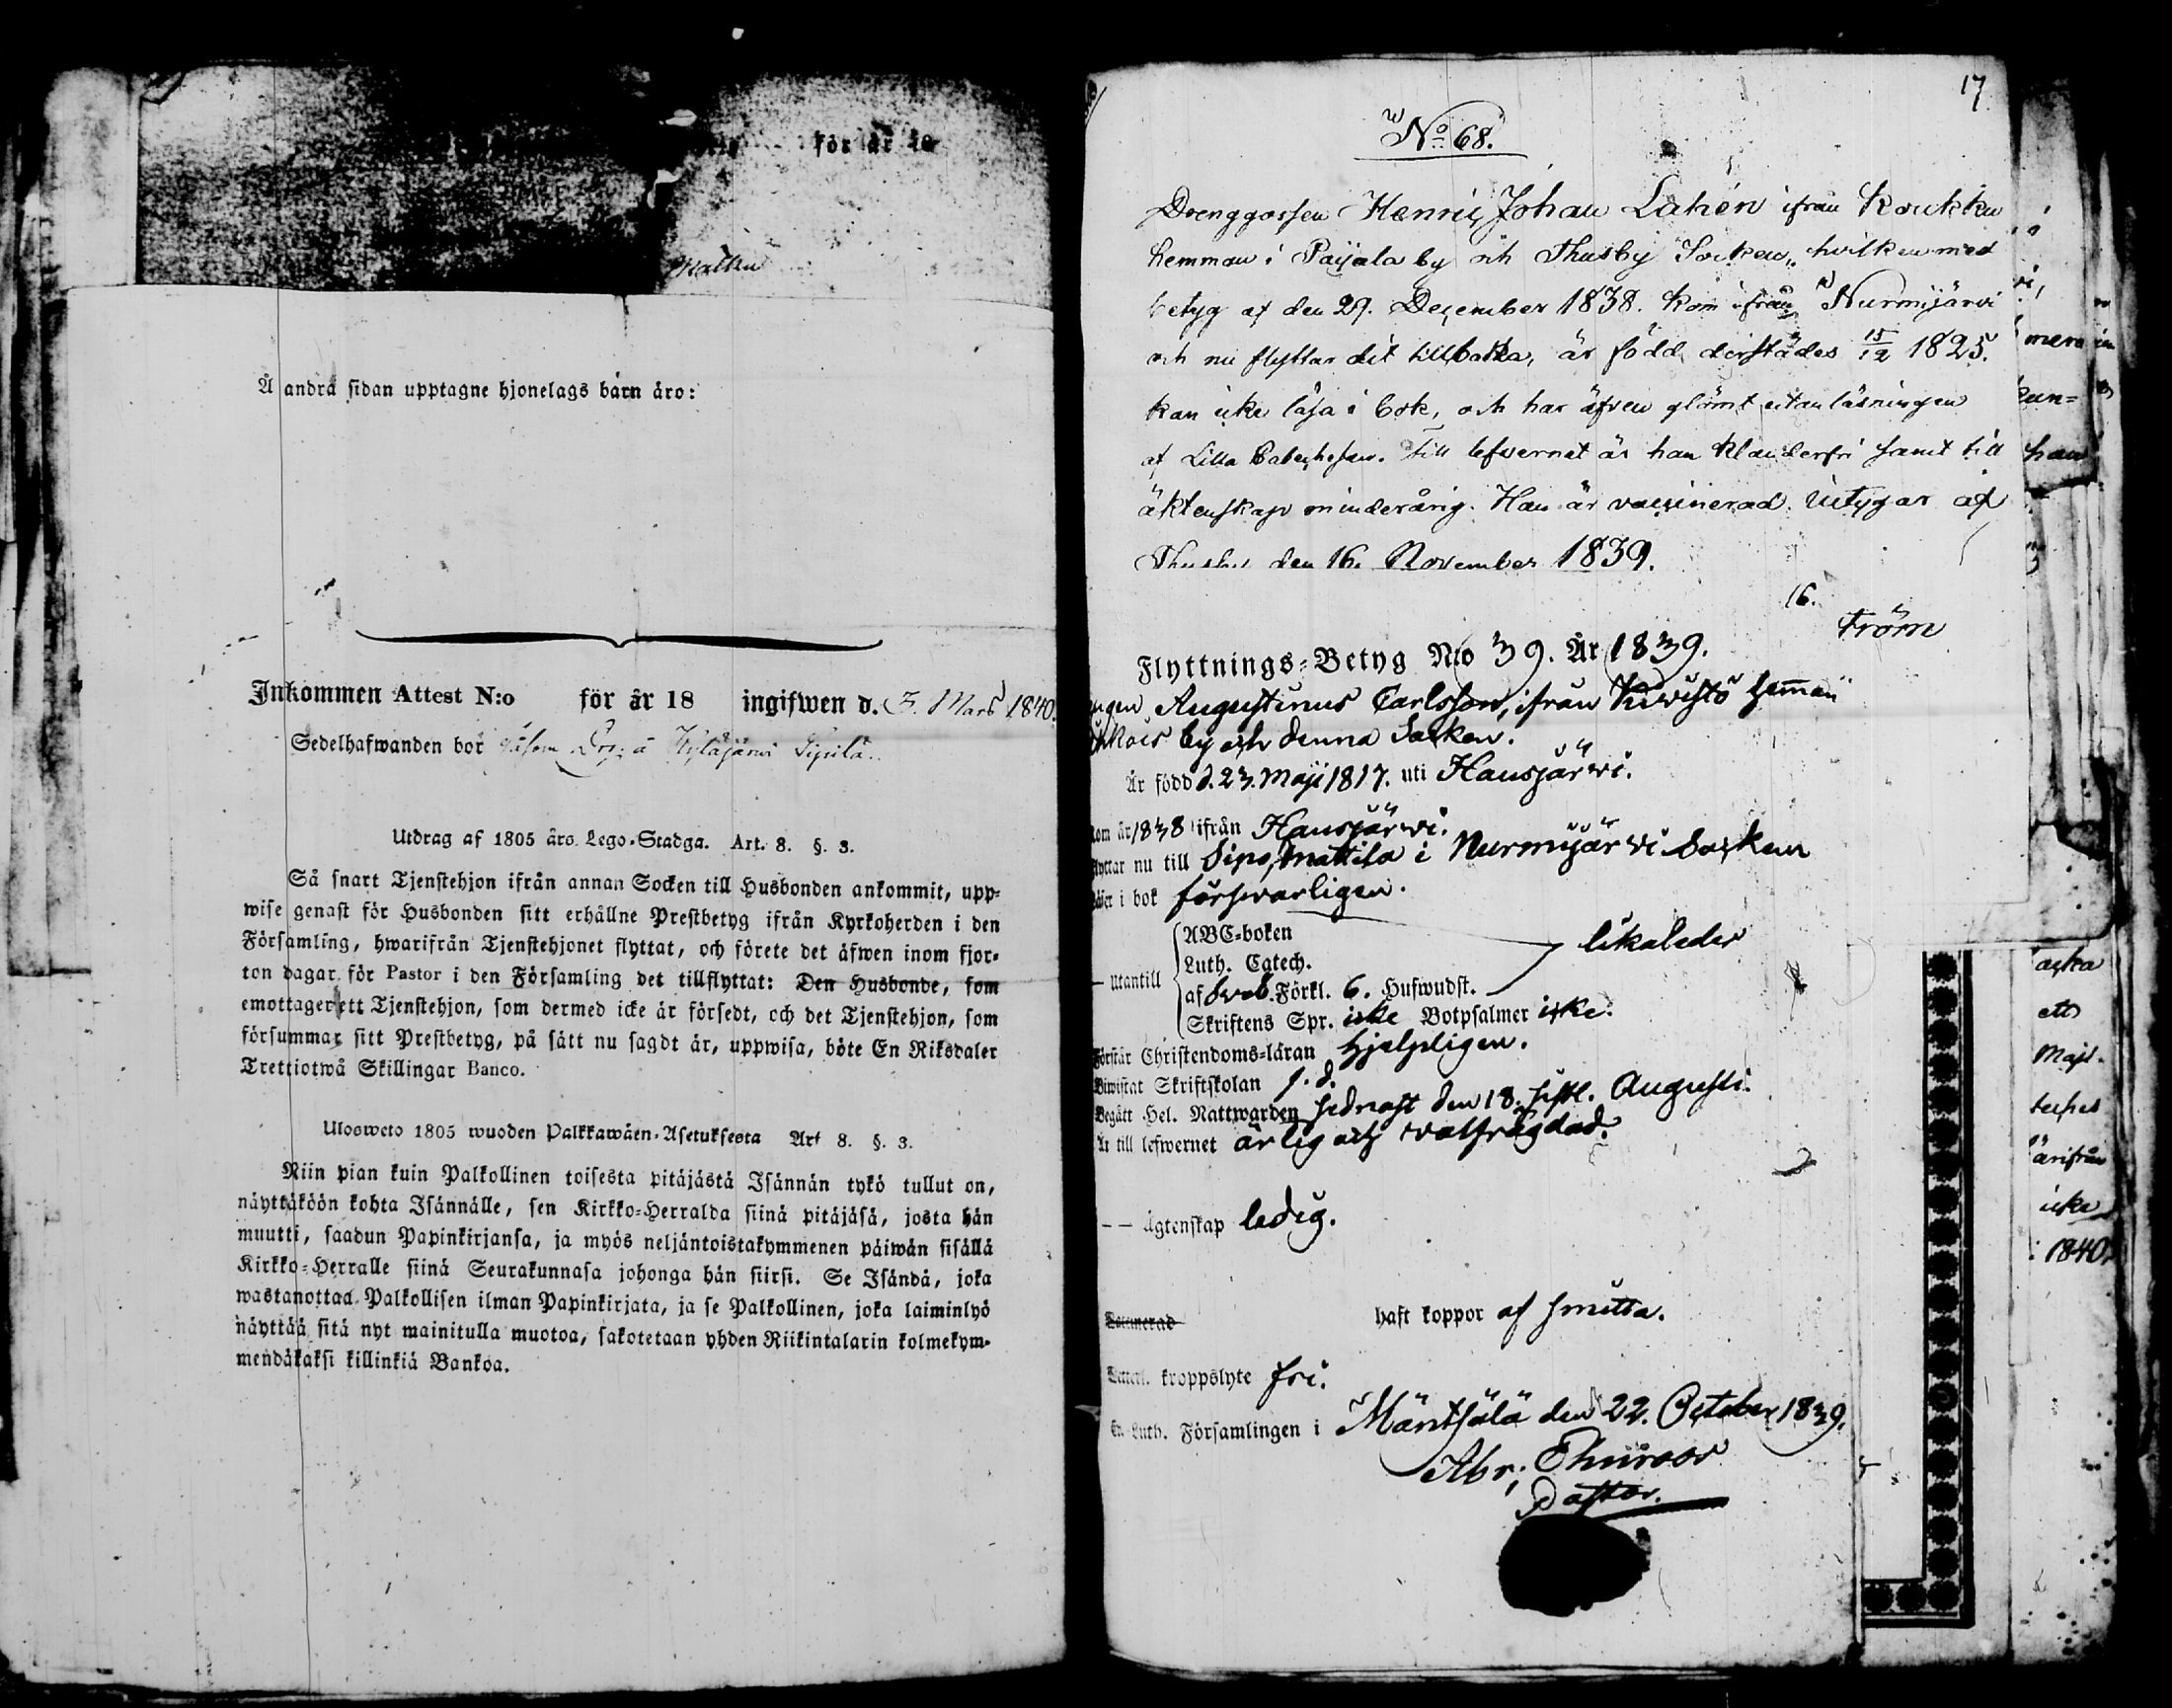 för år
Å andra sidan upptagne hjonelags barn äro:
Inkommen Attest N:o för år 18 ingifwen d. 7. Mars 1840.
Sedelhafwanden bor såsom Drg. å Kyläjärwi Sipilä.
Utdrag af 1805 års Lego-Stadga. Art. 8. §. 3.
Så snart Tjenstehjon ifrån annan Socken till Husbonden ankommit, upp-
wise genast för Husbonden sitt erhållne Prestbetyg ifrån Kyrkoherden i den
Församling, hwarifrån Tjenstehjonet flyttat, och förete det äfwen inom fjor-
ton dagar för Pastor i den Församling det tillflyttat: Den Husbonde, som
emottager ett Tjenstehjon, som dermed icke är försedt, och det Tjenstehjon, som
försummar sitt Prestbetyg, på sätt nu sagdt är, uppwisa, böte En Riksdaler
Trettiotwå Skillingar Banco.
Ulosweto 1805 wuoden Palkkawäen-Asetuksesta Art 8. §. 3.
Niin pian kuin Palkollinen toisesta pitäjästä Isännän tykö tullut on,
näyttäköön kohta Isännälle, sen Kirkko-Herralda siinä pitäjäsä, josta hän
muutti, saadun Papinkirjansa, ja myös neljäntoistakymmenen päiwän sisällä
Kirkko-Herralle siinä Seurakunnasa johonga hän siirsi. Se Isändä, joka
wastanottaa Palkollisen ilman Papinkirjata, ja se Palkollinen, joka laiminlyö
näyttää sitä nyt mainitulla muotoa, sakotetaan yhden Riikintalarin kolmekym-
mendäkaksi killinkiä Bankoa.
17
No 68.
Drenggossen Henric Johan Lahén ifrån Koukku
hemman i Paijala by och Thusby Socken, hvilken med
betyg af den 29. December 1838. kom ifrån Nurmijärvi
och nu flyttar dit tillbaka, är född derstädes 15/12 1825.
kan icke läsa i bok, och har äfven glömt utanläsningen
af Lilla Catechesen. Till lefvernet är han klanderfri samt till
äktenskap minderårig. Han är vaccinerad. Uitygar af
Thusby den 16. November 1839.
16.
tröm
Flyttnings-Betyg N:o 39. År 1839.
Augustinus Carlsson, ifrån Kivistö hemman
by och denna Socken.
Är född d. 23. Maji 1817. uti Hausjärwi.
1838 ifrån Hausjärwi.
nu till Sipo Mattila i Nurmijärwi Socken
i bok försvarligen.
ABC-boken
Luth. Catech. likaledes
utantill
af Sveb. Förkl. 6. Hufwudst.
Skriftens Spr. icke Botpsalmer icke.
Förstår Christendoms-läran hjelpligen.
Biwistat Skriftskolan j. d.
Begått Hel. Nattwarden sednast den 18. sistl. Augusti.
Är till lefwernet ärlig och välfrägdad.
— — ägtenskap ledig.
haft koppor af smitta.
kroppslyte fri.
Luth. Församlingen i Mäntsälä den 22. October 1839.
Abr. Thuroos
Pastor.
mera
kun-
han
aska
ett
Maji.
ärifrån
icke
1840.